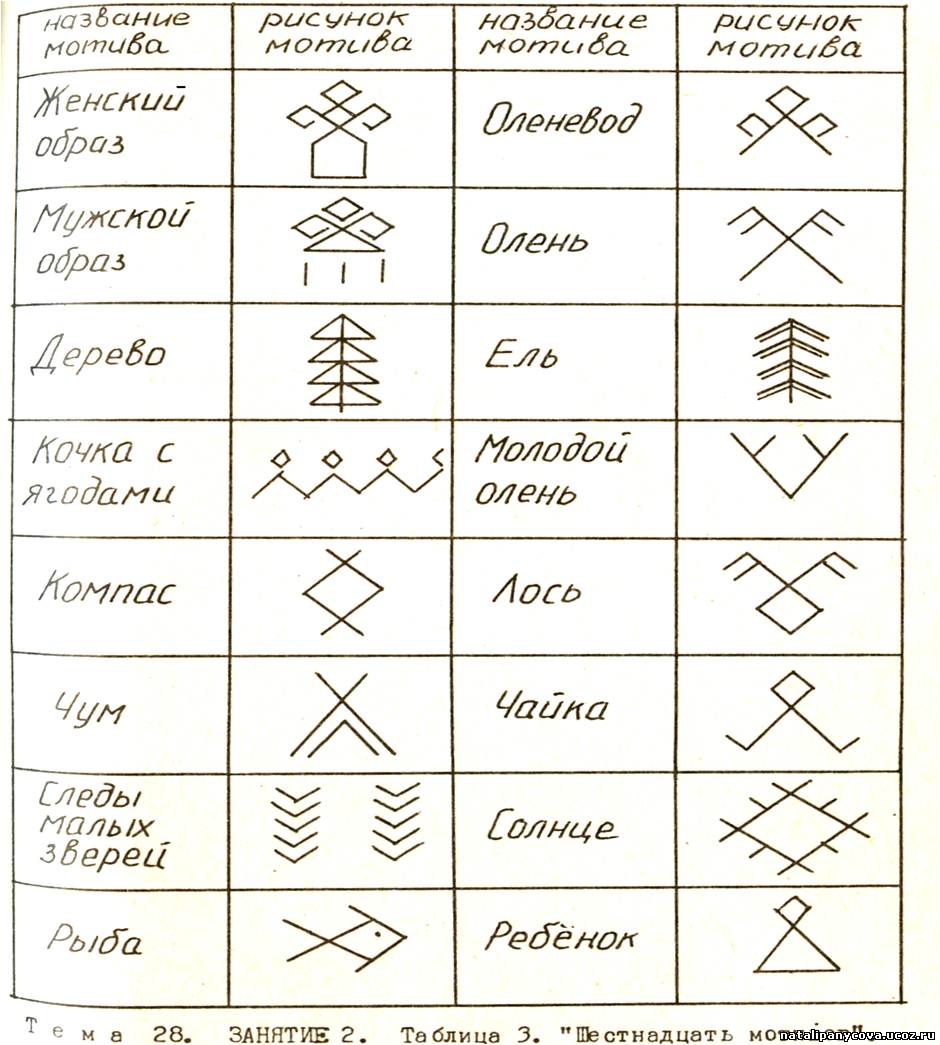 название мотива
рисунок мотива
название мотива
рисунок мотива
Женский образ
Оленевод
Мужской образ
Олень
Дерево
Ель
Кочка с ягодами
Молодой олень
Компас
Лось
Чум
Чайка
Следы малых зверей
Солнце
Рыба
Ребёнок
Тема 28. ЗАНЯТИЕ 2. Таблица 3. "Шестнадцать
natalipanycova.ucoz.ru